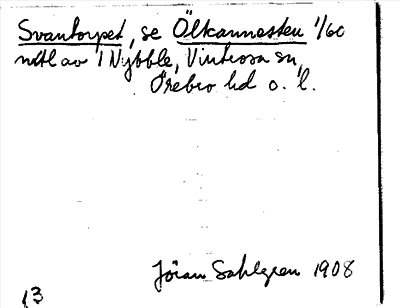 Svantorpet, se Ölkannesten 1/60
mtl av 1 Nybble, Vintrosa sn,
Örebro hd o. l.
Jöran Sahlgren 1908
13